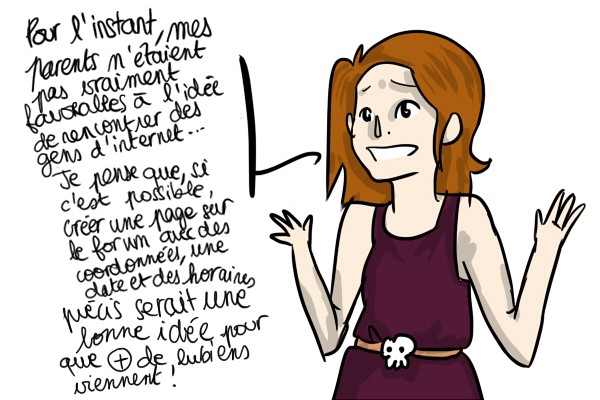 Pour l'instant, mes
parents n'étaient
pas vraiment
favorables à l'idée
de rencontrer des
gens d'internet...
Je pense que, si
c'est possible,
créer une page sur
le forum avec des
coordonnées, une
date et des horaires
précis serait une
bonne idée pour
que + de lubiens
viennent !